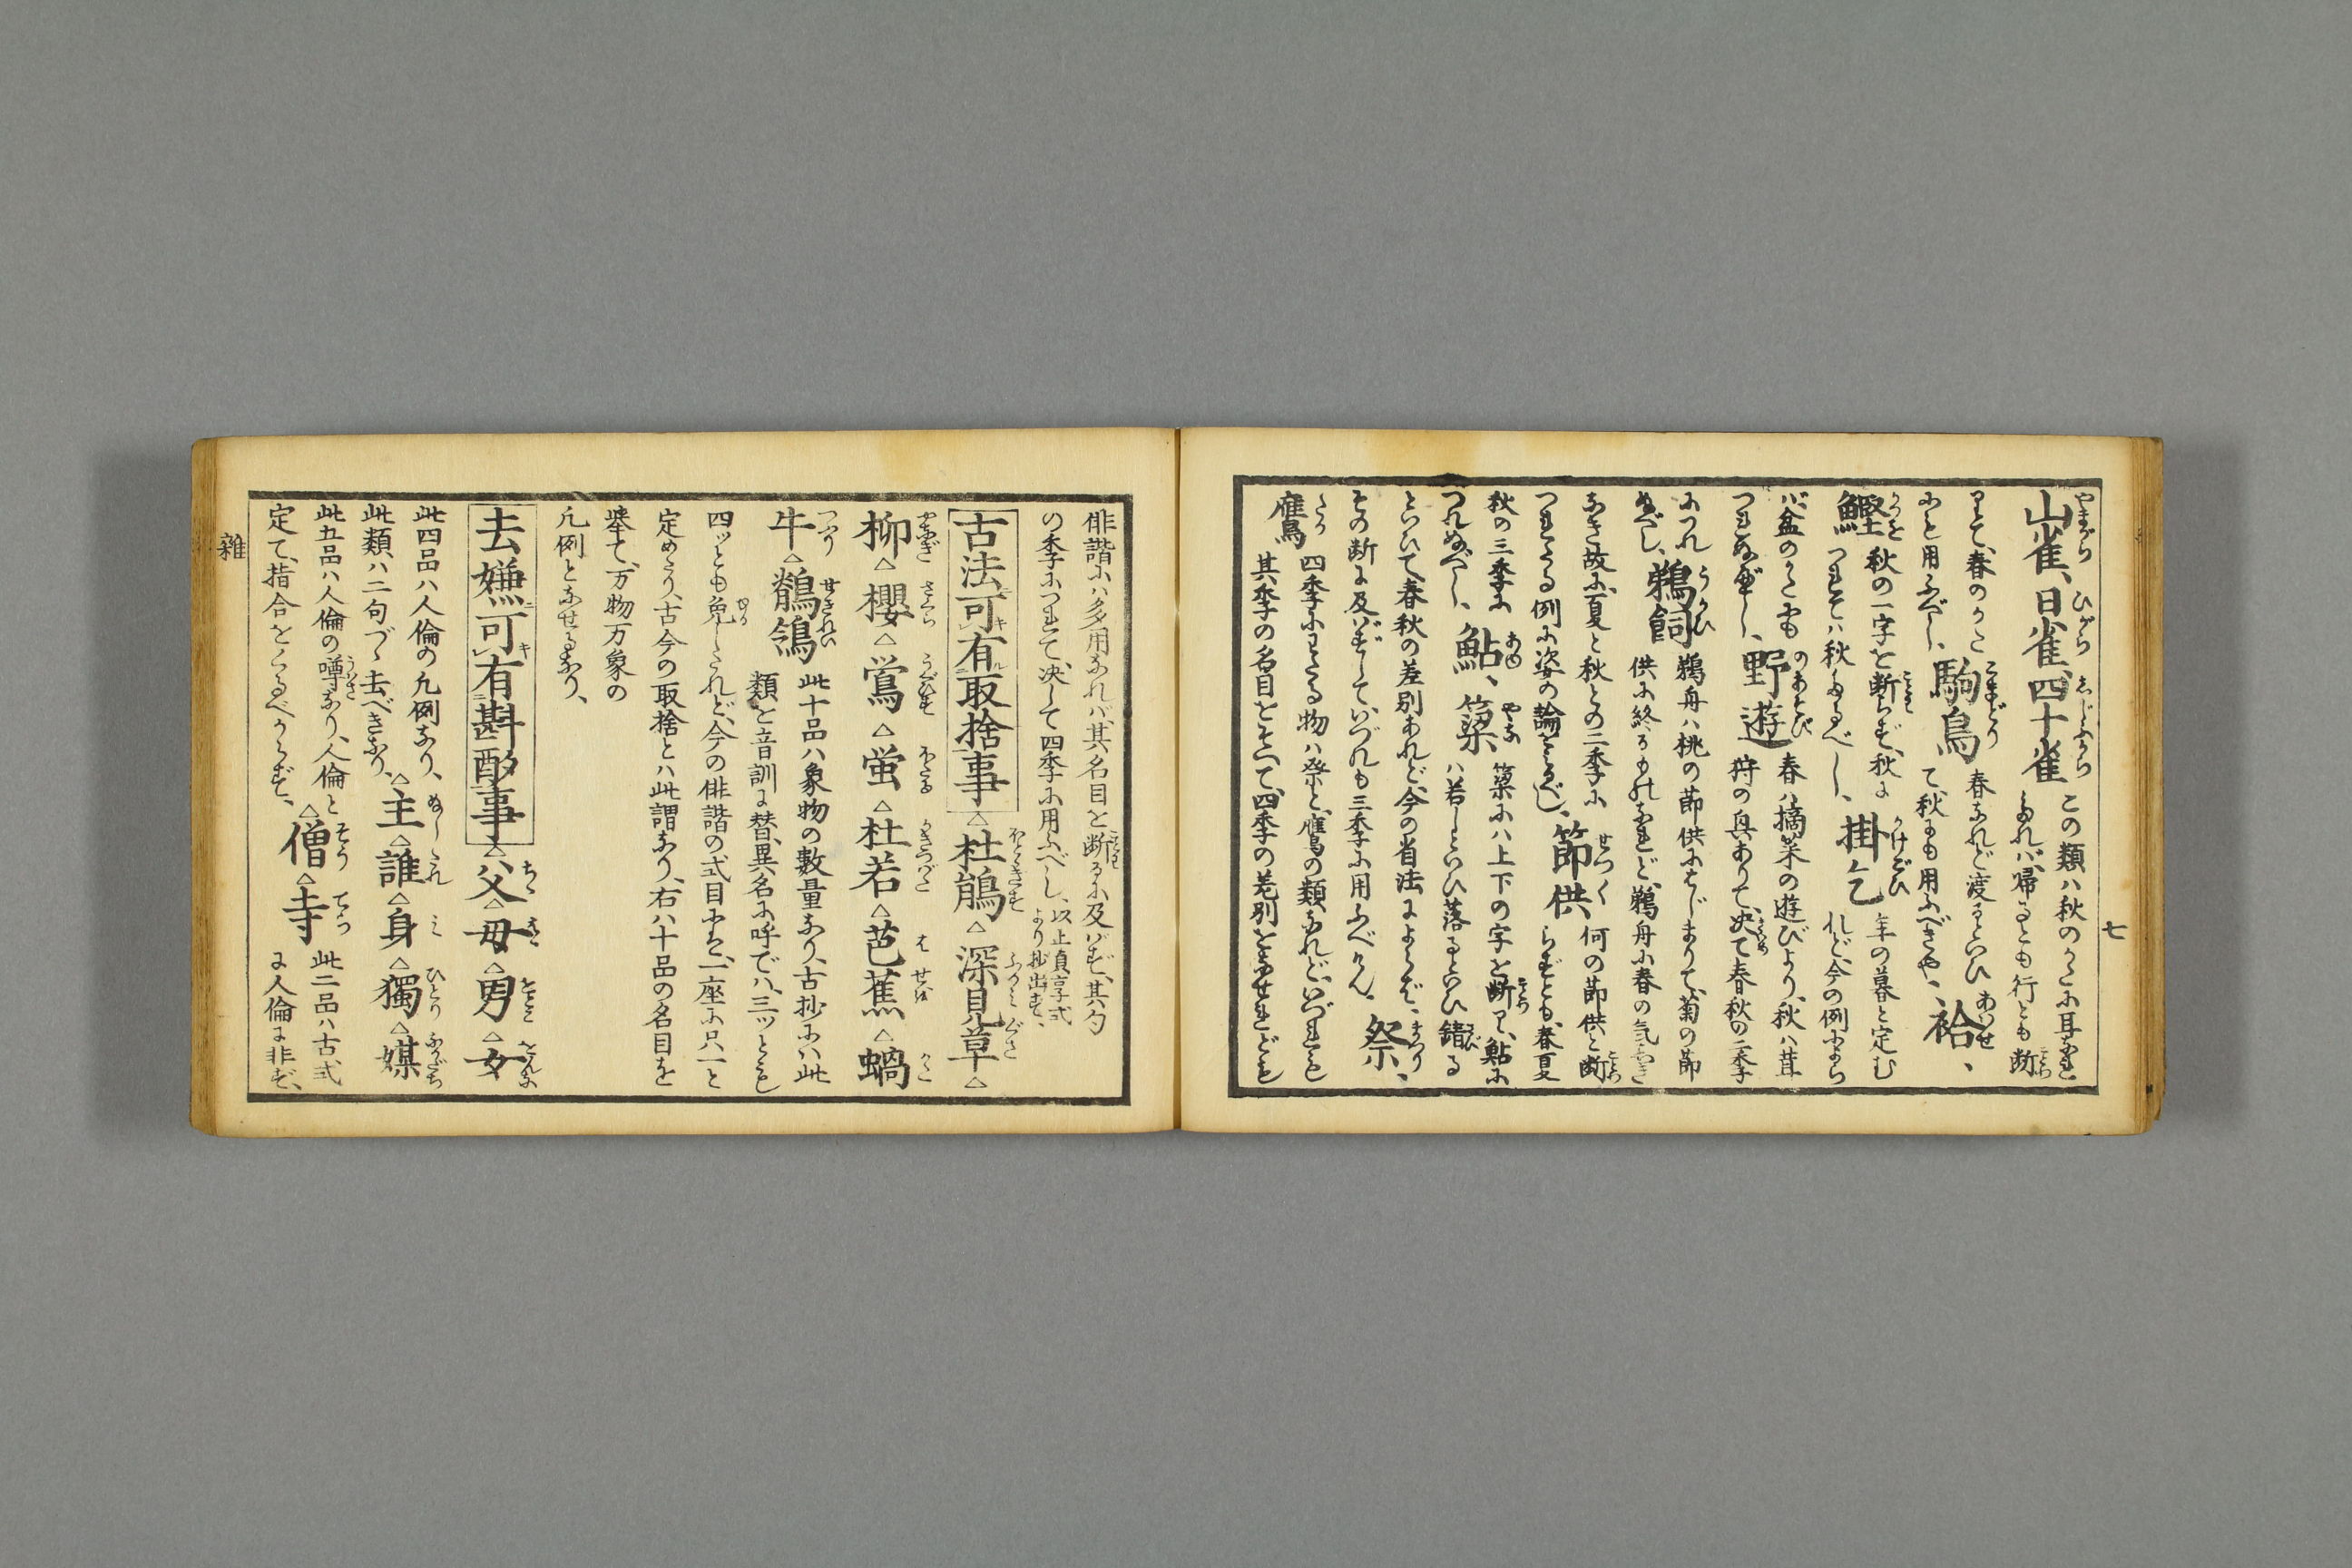 七
山雀、日雀、四十雀 この類ハ秋のかたに耳なれと
なれバ、帰るとも行とも断
りて、春のかた 駒鳥 春なれど渡るといひ 袷、
にと用ふべし、 て、秋にも用ふべきや、
鰹 秋の一字を断らず、秋に 掛乞 年の暮と定む
つれてハ秋なるべし、 れど、今の例によら
バ、盆のかたにも 野遊 春ハ摘菜の遊びより、秋ハ茸
つれぬべし、 狩の興ありて、决て春秋の二季
につれ 鵜飼 鵜舟ハ桃の節供にはじまりて、菊の節
ぬべし、 供に終るものなれど、鵜舟に春の気なき
なき故に、夏と秋との二季に 節供 何の節供と断
つれたる例に姿の論をとるべし、 らずとも、春夏
秋の三季に 鮎、簗、 簗にハ上下の字を断り、鮎に
つれぬべし、 ハ若しといひ落るといひ錆る
といひて春秋の差別あれど、今の省法によらバ、祭、
その断に及バずして、いづれも三季に用ふべけん、
鷹、 四季にわたる物ハ祭と、鷹の類なれど、いづれも
其季の名目をそへて、四季の差別をなせれども
俳諧にハ多用なれバ、其名目を断るに及バず、其勺
の季につれて、决して四季に用ふべし、以上貞享式より抄出す、
古法可有取捨事 △杜鵑 △深見草△
柳△櫻△鴬△蛍△杜若△芭蕉△蝸
牛△鶺鴒 此十品ハ象物の數量なり、古抄にハ此
類を音訓に替、異名に呼でハ、三ッとも
四ッとも免したれど、今の俳諧の式目にハ、一座に只一と
定めたり、古今の取捨とハ此謂なり、右ハ十品の名目を
挙て、万物万象の
凡例となせるなり、
去嫌可有斟酌事 △父△母△男△女
此四品ハ人倫の凡例なり、
此類ハ二句づゝ去べきなり、△主△誰△身△獨△媒
此五品ハ人倫の噂なり、人倫と △僧△寺 此二品ハ古式
定て、指合をくるべからず、 に人倫に非ず、
雜